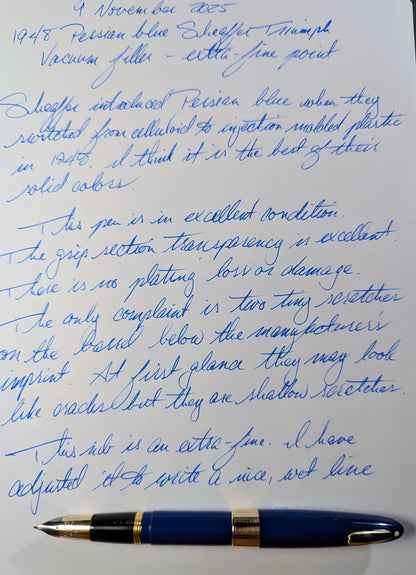 9 November 2025
1948 Persian blue Sheaffer Triumph
Vacuum filler - extra-fine point
Sheaffer introduced Persian blue when they
switched from celluloid to injection molded plastic
in 1948. I think it is the best of their
solid colors.
This pen is in excellent condition.
The grip section transparency is excellent.
There is no plating loss or damage.
The only complaint is two tiny scratches
on the band below the manufacturer's
imprint. At first glance they may look
like cracks but they are shallow scratches.
This nib is an extra-fine. I have
adjusted it to write a nice, wet line